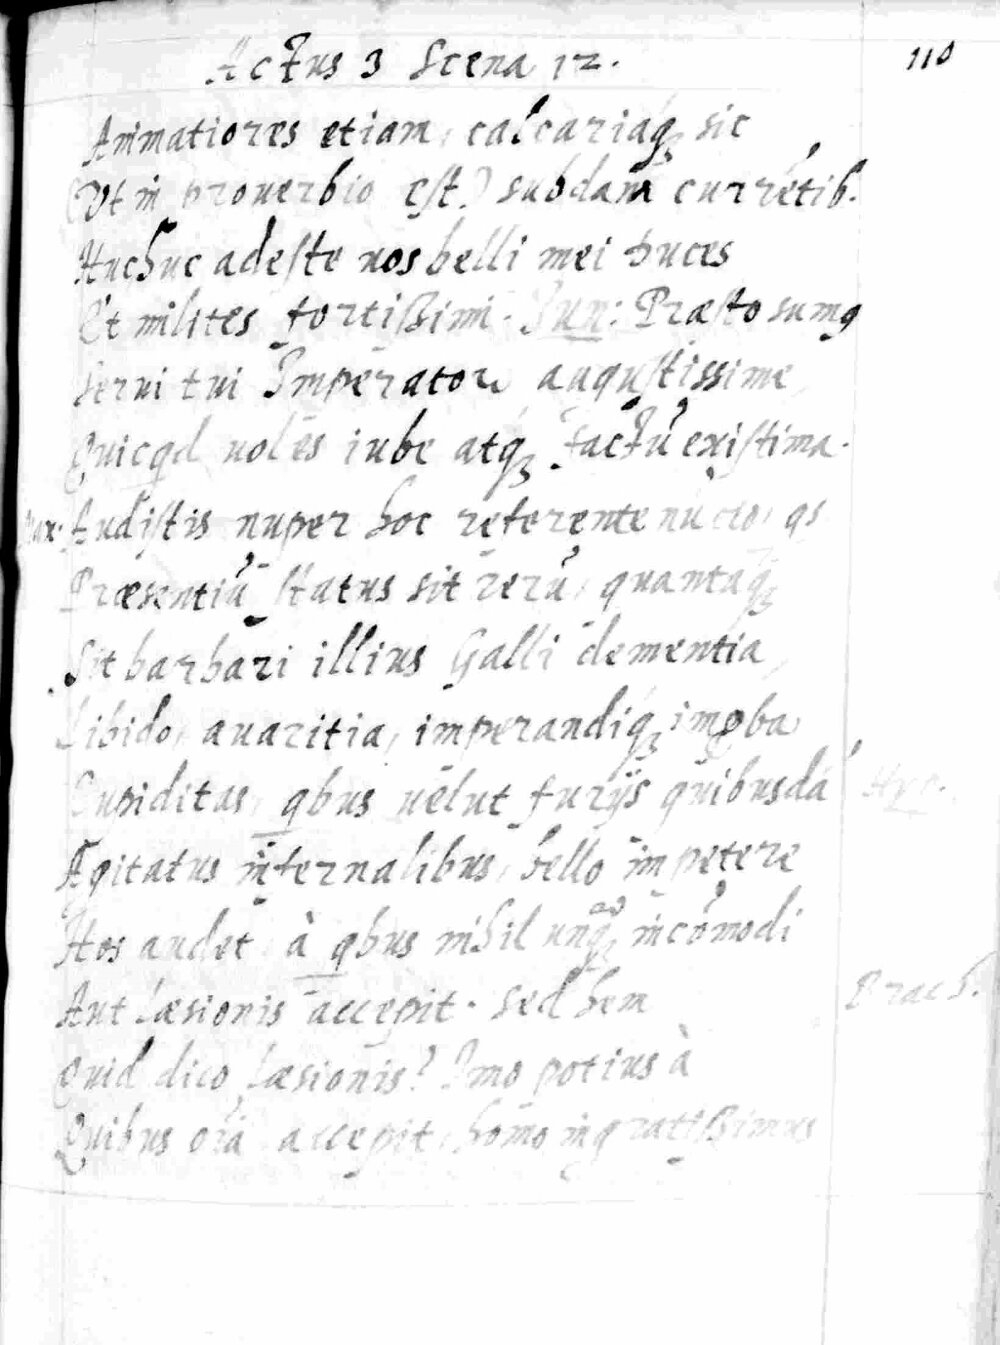 Actus 3 Scena 12.
110
Animatiores etiam, calcariaq́ꝫ sic
(Vt in prouerbio est) subdam currẽtib.
Huc huc adeste uos belli mei duces
Et milites fortißimi. Jun: Præsto sumꝯ
Serui tui Imperator augustissime,
Quicqd uoles iube atq́ꝫ factũ existima.
Max: Audistis nuper hoc referente nũcio, qs
Præsentiũ status sit rerũ, quantaq́ꝫ
Sit barbari illius Galli dementia,
Libido, auaritia, imperandiq́ꝫ imꝓba
Cupiditas, qbus uelut furijs quibusdã
Agitatus infernalibus, bello impetere
Hos audet, à qbus nihil unqꝫ incõmodi
Aut læsionis accepit. Sed hem
Quid dico læsionis? Imo potius à
Quibus oĩa accepit, homo ingratißimus
Brach.